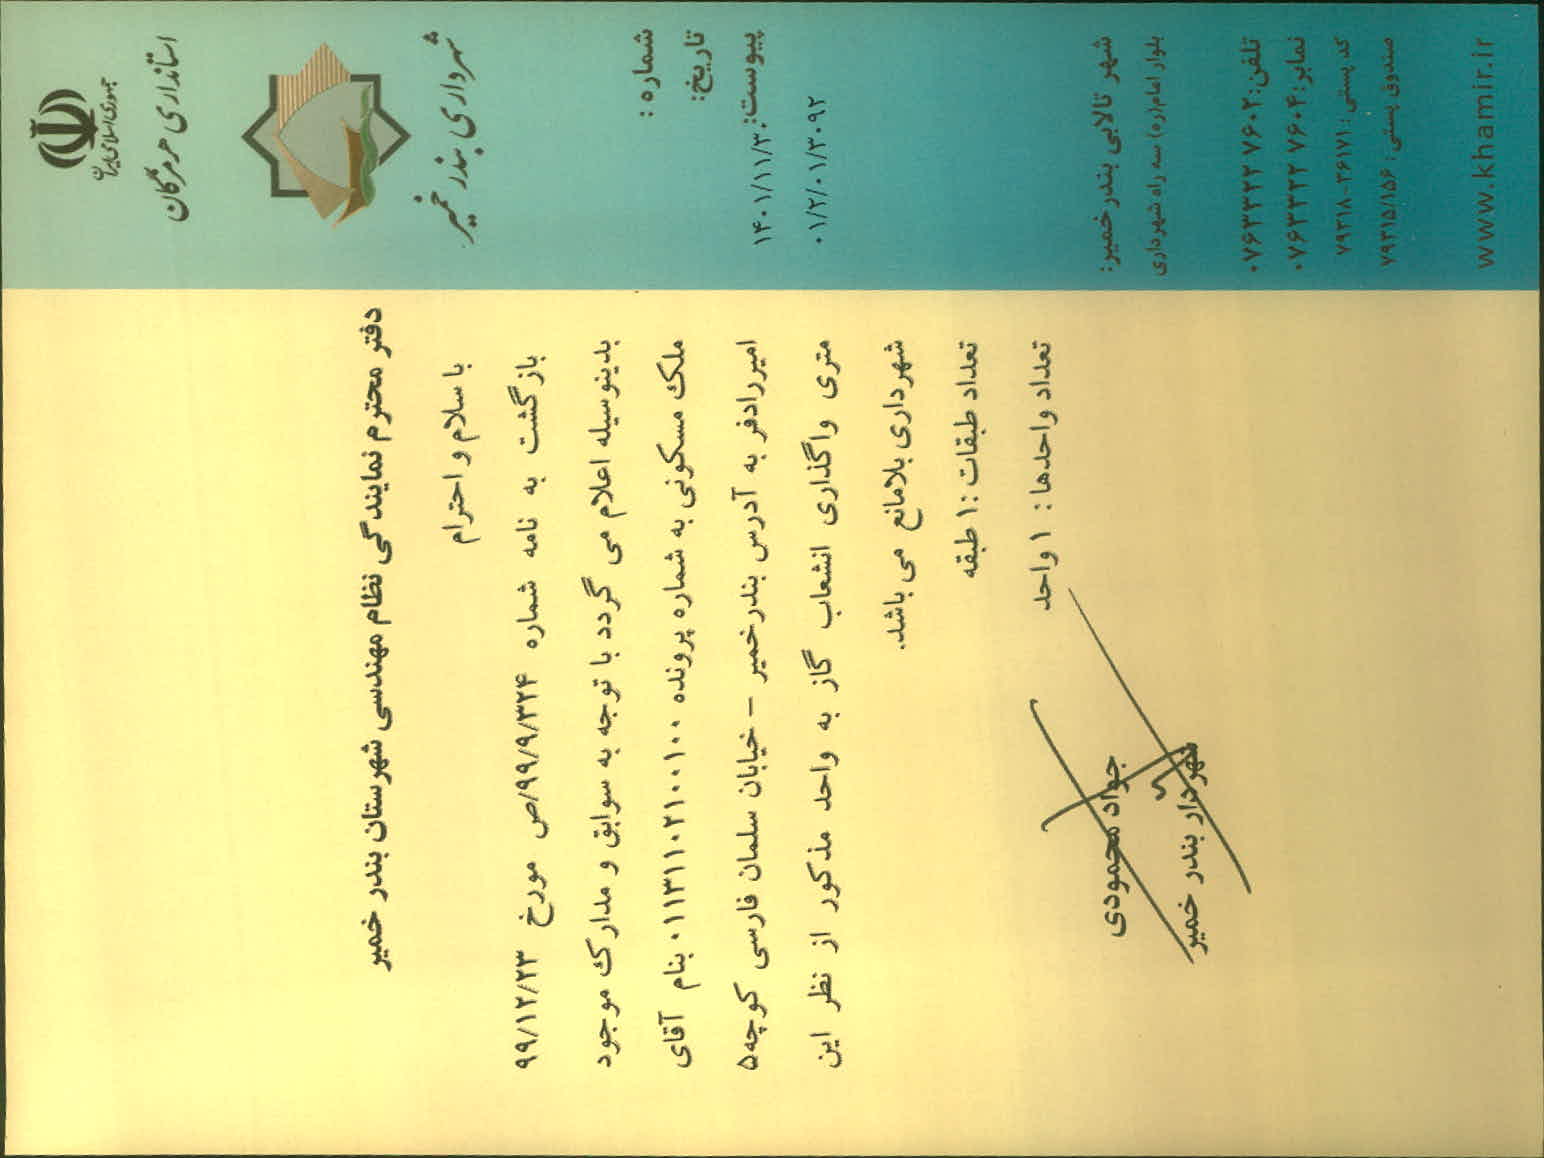 جمهوری اسلامی ایران
استانداری هرمزگان
شهرداری بندر خمیر
شماره :
تاریخ:
پیوست:
۱۴۰۱/۱۱/۳۰
۰۱/۲/۰۱/۳۰۹۲
دفتر محترم نمایندگی نظام مهندسی شهرستان بندر خمیر
با سلام و احترام
بازگشت به نامه شماره ۹۹/۹/۳۲۴/ص مورخ ۹۹/۱۲/۲۳
بدینوسیله اعلام می گردد با توجه به سوابق و مدارک موجود
ملک مسکونی به شماره پرونده ۰۱۱۳۱۱۰۲۱۰۰۱۰۰ بنام آقای
امیررادفر به آدرس بندرخمیر – خیابان سلمان فارسی کوچه۵
متری واگذاری انشعاب گاز به واحد مذکور از نظر این
شهرداری بلامانع می باشد.
تعداد طبقات :۱ طبقه
تعداد واحدها : ۱ واحد
جواد محمودی
شهردار بندر خمیر
شهر تالابی بندرخمیر:
بلوار امام(ره) سه راه شهرداری
تلفن: ۰۷۶۳۳۲۲ ۷۶۰۲
نمابر: ۰۷۶۳۳۲۲ ۷۶۰۴
کد پستی : ۷۹۳۱۸-۳۶۱۷۱
صندوق پستی : ۷۹۳۱۵/۱۵۶
www.khamir.ir